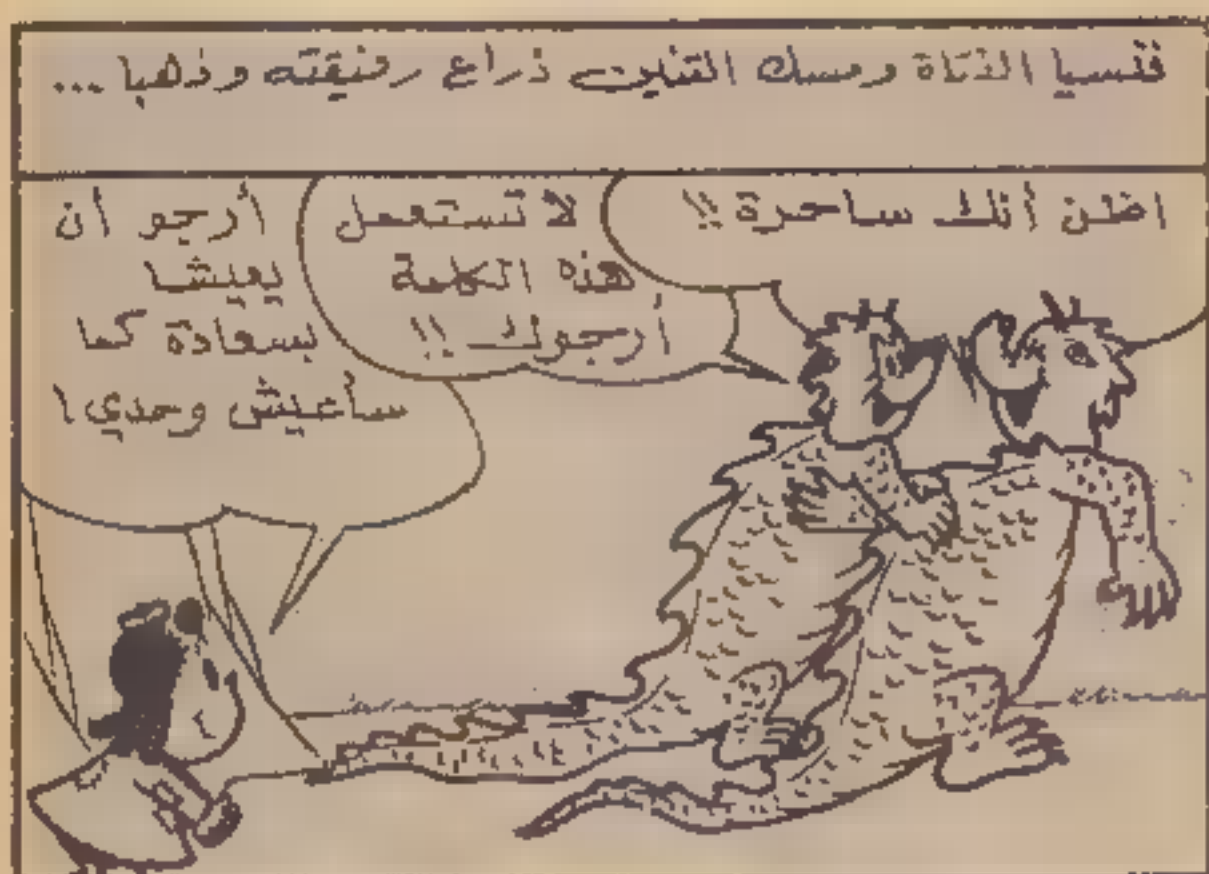 فنسيا الفتاة ومسك التنين ذراع رفيقته وذهبا ...
اظن أنك ساحرة !!
لا تستعمل
هذه الكلمة
أرجوك !!
أرجو أن
يعيشا
بسعادة كما
سأعيش وحدي !